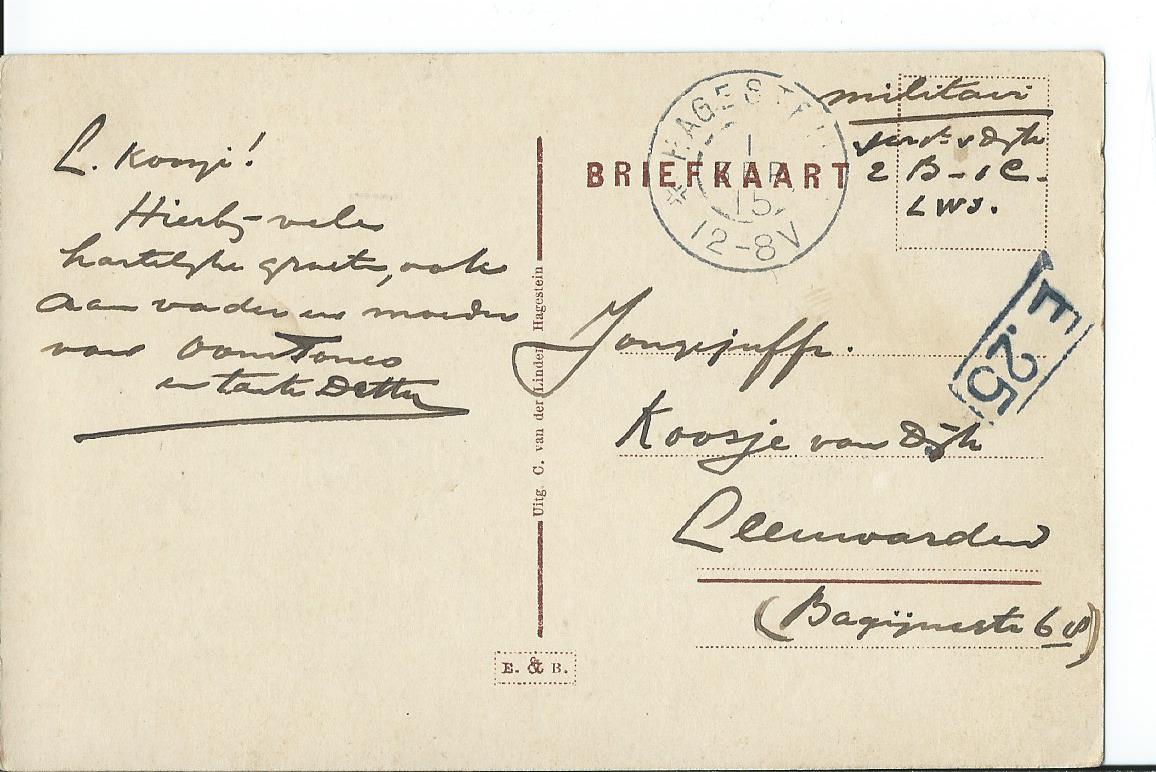 L. Koosje!
Hierbij vele
hartelijke groeten, ook
aan vader en moeder
van oom Toneo
en tante Detta
Uitg. C. van der Linden Hagestein
E. & B.
BRIEFKAART
HAGESTEIN
1
15
12-8V
militair
v Dijk
2 B - 1 C -
LWS.
F. 25
Jongejuffr.
Koosje van Dijk
Leeuwarden
(Bagijnestr 68)